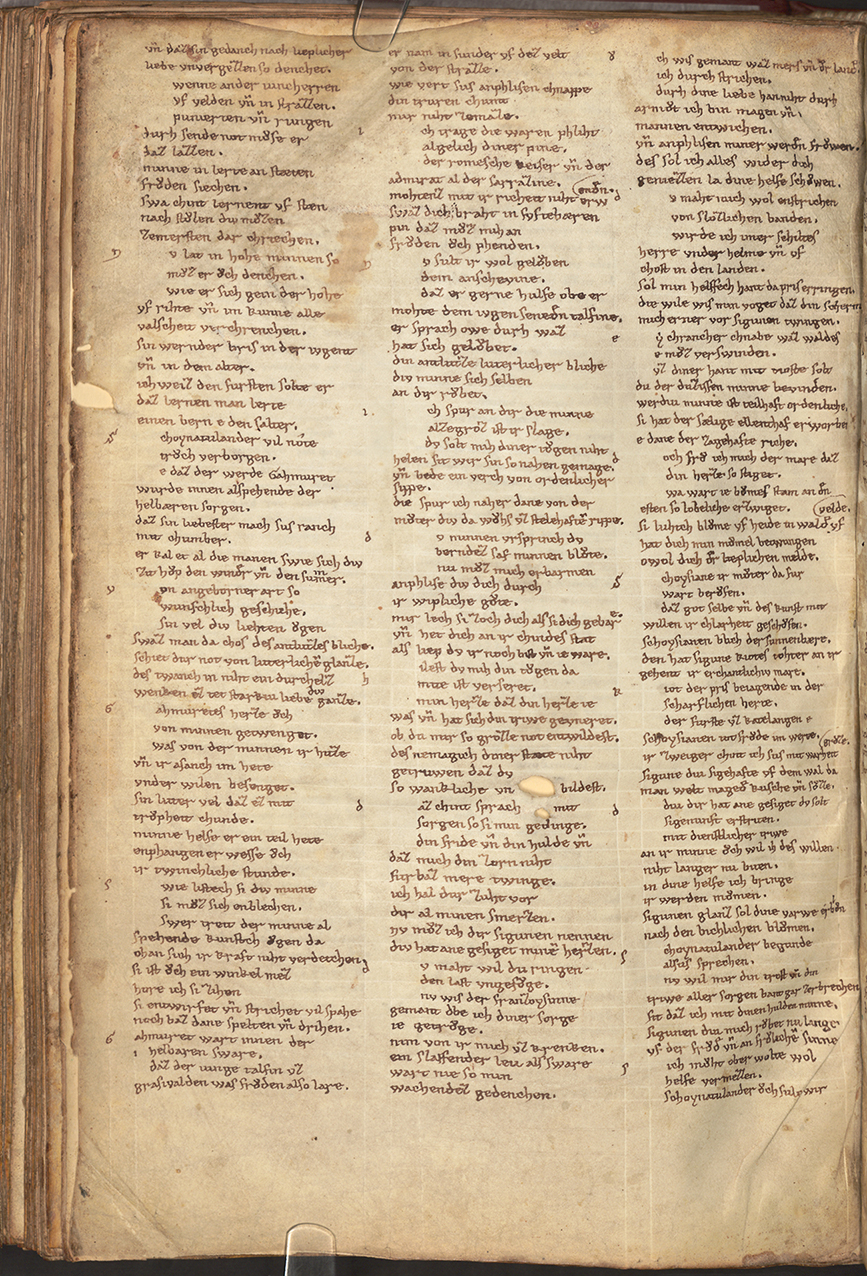 vn̄ daz sin gedanch nach lieplicher
liebe vnvergezzen so denchet.
wenne ander iuncherren
vf velden vn̄ in strazzen.
punierten vn̄ rungen
durh sende not mose er
daz lazzen.
minne in lerte an stæten
froden siechen.
swa chint lernent vf sten
nach stolen div mozen
zemersten dar chriechen.
v lat in hohe minnen so
moz er och denchen.
wie er sich gein der hohe
vf rihte vn̄ im kunne alle
valscheit verchrenchen.
sin wernder bris in der ivgent
vn̄ in dem alter.
ich weiz den fursten solte er
daz lernen man lerte
einen bern e den salter.
choynatulander vil note
troch verborgen.
e daz der werde Gahmuret
wurde innen alspehende der
helbæren sorgen.
daz sin liebester mach sus ranch
mit chumber.
er kal et al die manen swie sich div
zit hop den winter vn̄ den summer.
on angeborner art so
wunschlich geschihte.
sin vel div liehten ogen
swaz man da chos des antluzes bliche.
schiet dur not von lutterlichē glanze.
des twanch in niht ein durchelz
wenken ez tet starkiu liebe div ganze.
ahmuretes herze och
von minnen getwenget.
was von der minnen ir hitze
vn̄ ir asanch im hete
vnder wilen besenget.
sin luter vel daz ez mit
trophheit chunde.
minne helfe er ein teil hete
enphangen er wesse och
ir twinchliche stunde.
wie listech si div minne
si moz sich enblechen.
swer treit der minne al
spehende kunstech ogen da
chan sich ir kraft niht verdecchen.
si ist och ein winkel mez
hore ich si zihen
si entwirfet vn̄ strichet vil spahe
noch baz dane spelten vn̄ drihen.
ahmuret wart innen der
helbaren sware.
daz der iunge talfin vz
grasivalden was froden also lare.
er nam in sunder vf dez velt
von der strazze.
wie vert sus anphlisen chnappe
din truren chumt
mir niht zemaze.
ch trage die waren phliht
al gelich diner pine.
der romesche keiser vn̄ der
admirat al der sarrazine.
mohtenz mit ir richeit niht erwenden.
swaz dich braht in syftebæren
pin daz moz mih an
froden och phenden.
v sult ir wol geloben
dem anscheyine.
daz er gerne hulfe obe er
mohte dem ivgen seneden talfine.
er sprach owe durh waz
hat sich gelobet.
din antluze luterlicher bliche
div minne sich selben
an dir robet.
ch spur an dir die minne
alzegroz ist ir slage.
dv solt mih diner togen niht
helen sit wir sin so nahen gemage.
vn̄ bede ein verch von ordenlicher
sippe.
die spur ich naher dane von der
moter div da wohs vz stelehafter rippe.
v minnen vrsprinch dv
berndez saf minnen blote.
nu moz mich erbarmen
anphlise div dich durch
ir wipliche gote.
mir lech si zoch dich als si dich gebære.
vn̄ het dich an ir chindes stat
als liep dv ir noch bist vn̄ ie ware.
ilest dv mih din togen da
mite ist verseret.
min herze daz din herze ie
was vn̄ hat sich div triwe geuneret.
ob du mir so grozze not entwildest.
des nemagich diner stæte niht
getruwen daz dv
so wankliche vn bildest.
az chint sprach mit
sorgen so si min gedinge.
din fride vn̄ din hulde vn̄
daz mich din zorn niht
furbaz mere twinge.
ich hal dur zuht vor
dir al minen smerzen.
nv moz ich dir sigunen nennen
div hat ane gesiget minē herzen.
v maht wil du ringen
den last vngefoge.
nv wis der frantzoysinne
gemant obe ich diner sorge
ie getroge.
nim von ir mich vz krenken.
ein slaffender leu als sware
wart nie so min
wachendez gedenchen.
ch wis gemant waz mers vn̄ der lande
ich durch strichen.
durh dine liebe han niht durh
armot ich bin magen vn̄
mannen entwichen.
vn̄ anphlisen miner werden frowen.
des sol ich alles wider dich
geniezzen la dine helfe schowen.
v maht mich wol enstrichen
von slozlichen banden.
wirde ich imer schiltes
herre vnder helme vn̄ vf
chost in den landen.
sol min helffech hant da pris erringen.
die wile wis min voget daz din scherm
mich erner vor sigunen twingen.
y chrancher chnabe waz waldes
e moz verswinden.
vz diner hant mit tioste solt
du der duzissen minne bevinden.
werdiu minne ist teilhaft ordenliche.
si hat der sælige ellenthaf erworben
e dane der zagehafte riche.
och fro ich mich der mare daz
din herze so stiget.
wa wart ie bomes stam an den
esten so lobeliche erzwiget.
si luhtech blome vf heide in wald vf velde.
hat dich min momel betwungen
owol dich der lieplichen melde.
choysiane ir moter da fur
wart beroſen.
daz got selbe vn̄ des kunst mit
willen ir chlarheit geschofen.
schoysianen blich der sunnenbere.
den hat sigune kiotes tohter an ir
gehent ir erchantlichiv mare.
iot der pris beiagende in der
scharflichen herte.
der furste vz katelangen e
schoysianen tot frode im werte.
ir zweiger chint ich sus mit warheit groze.
sigune div sigehafte vf dem wal da
man welt magede kusche vn̄ soze.
du dir hat ane gesiget dv solt
sigenunft erstriten.
mit dienstlicher triwe
an ir minne och wil ih des willen
niht langer nu biten.
in dine helfe ich bringe
ir werden momen.
sigunen glanz sol dine varwe erblon
nach den bichlichen blomen.
choynatulander begunde
alsus sprechen.
nv wil mir din trost vn̄ din
triwe aller sorgen bant gar zerbrechen
sit daz ich mit dinen hulden minne.
sigunen div mich robet nu lange
vf der frod vn̄ an frolichē sinne
ich moht ober wolte wol
helfe vermezzen.
schoynatulander och sulewir